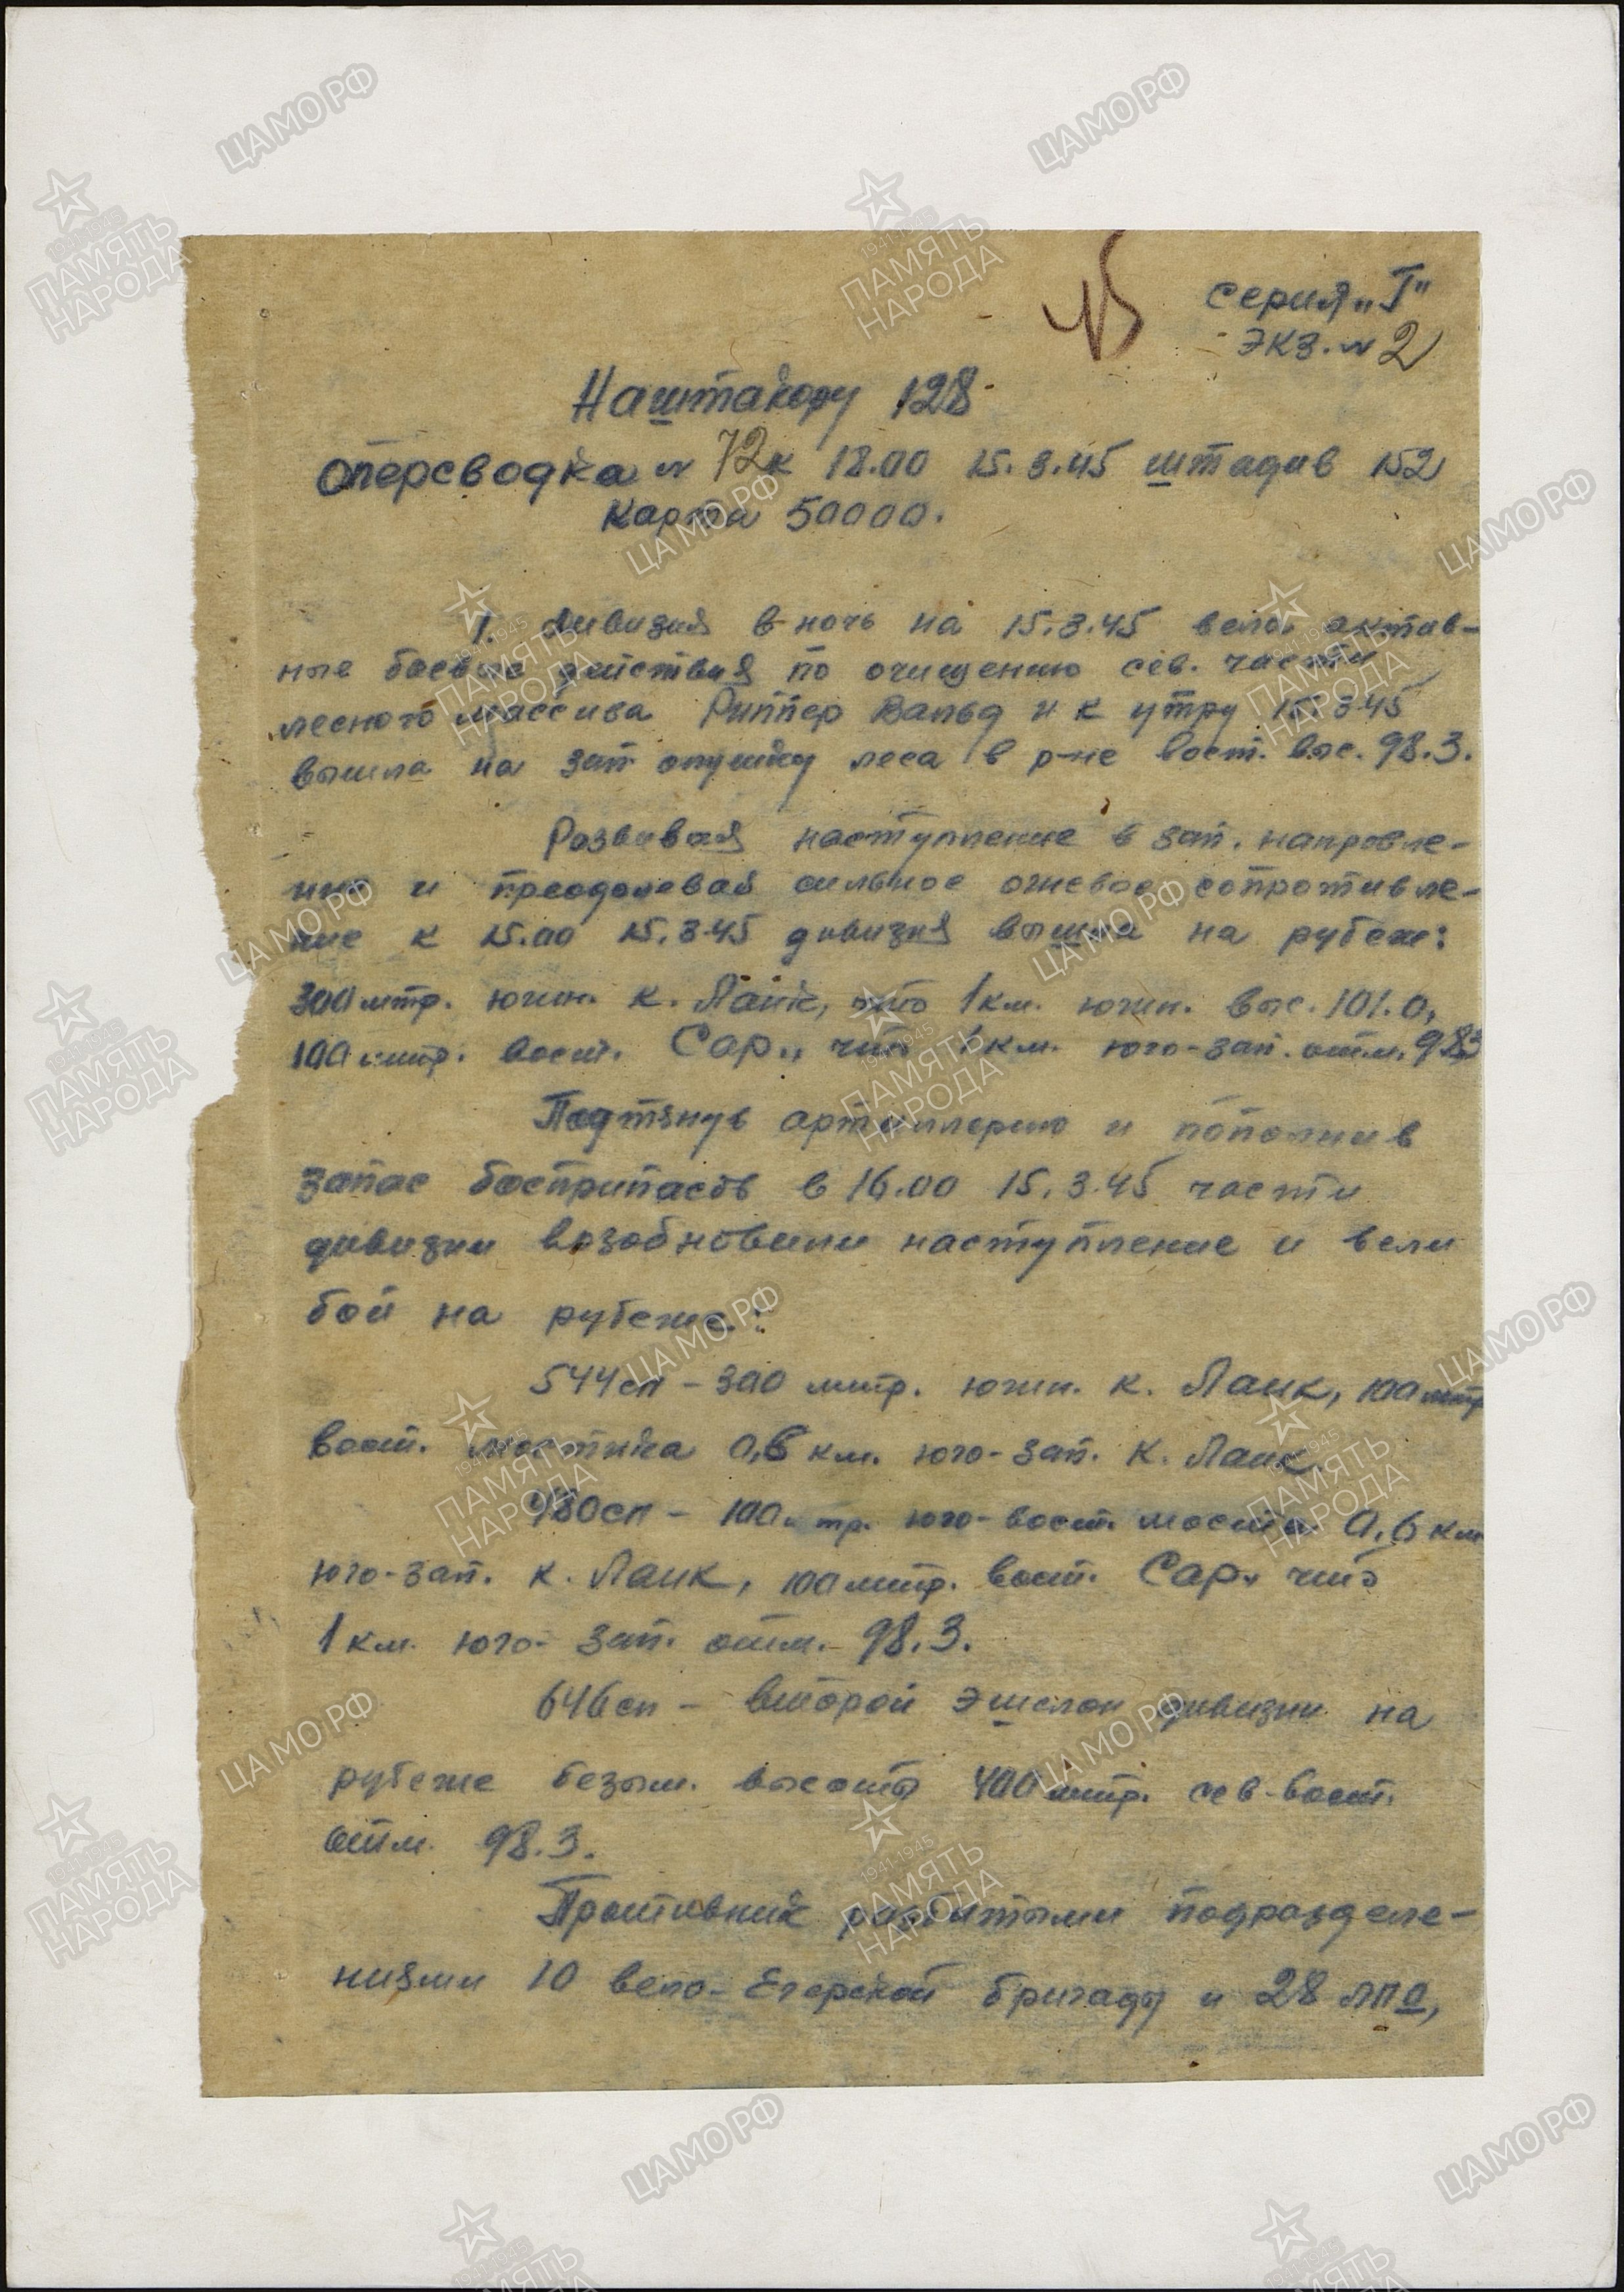 45
серия „Г"
экз. № 2
Наштакору 128
Оперсводка № 72 к 18.00 15.3.45 штадив 152
Карта 50000.
1. Дивизия в ночь на 15.3.45 вела актив-
ные боевые действия по очищению сев. части
лесного массива Риппер Вальд и к утру 15.3.45
вышла на зап опушку леса в р-не вост. выс. 98.3.
Развивая наступление в зап. направле-
нию и преодолевая сильное огневое сопротивле-
ние к 15.00 15.3.45 дивизия вышла на рубеж:
300 мтр. южн. к. Ланк, что 1 км. южн. выс. 101.0,
100 мтр. вост. Сар., что 1 км. юго-зап. отм. 98.3
Подтянув артиллерию и пополнив
запас боеприпасов в 16.00 15.3.45 части
дивизии возобновили наступление и вели
бой на рубеже:
544 сп - 300 мтр. южн. к. Ланк, 100 мтр
вост. мостика 0,6 км. юго-зап. К. Ланк.
480 сп - 100 мтр. юго-вост. моста 0,6 км
юго-зап. к. Ланк, 100 мтр. вост. Сар. что
1 км. юго-зап. отм. 98.3.
646 сп - второй эшелон дивизии на
рубеже безым. высоты 400 мтр. сев-вост.
отм. 98.3.
Противник разбитыми подразделе-
ниями 10 вело-Егерской бригады и 28 лпд,
ЦАМО РФ
1941-1945
ПАМЯТЬ
НАРОДА